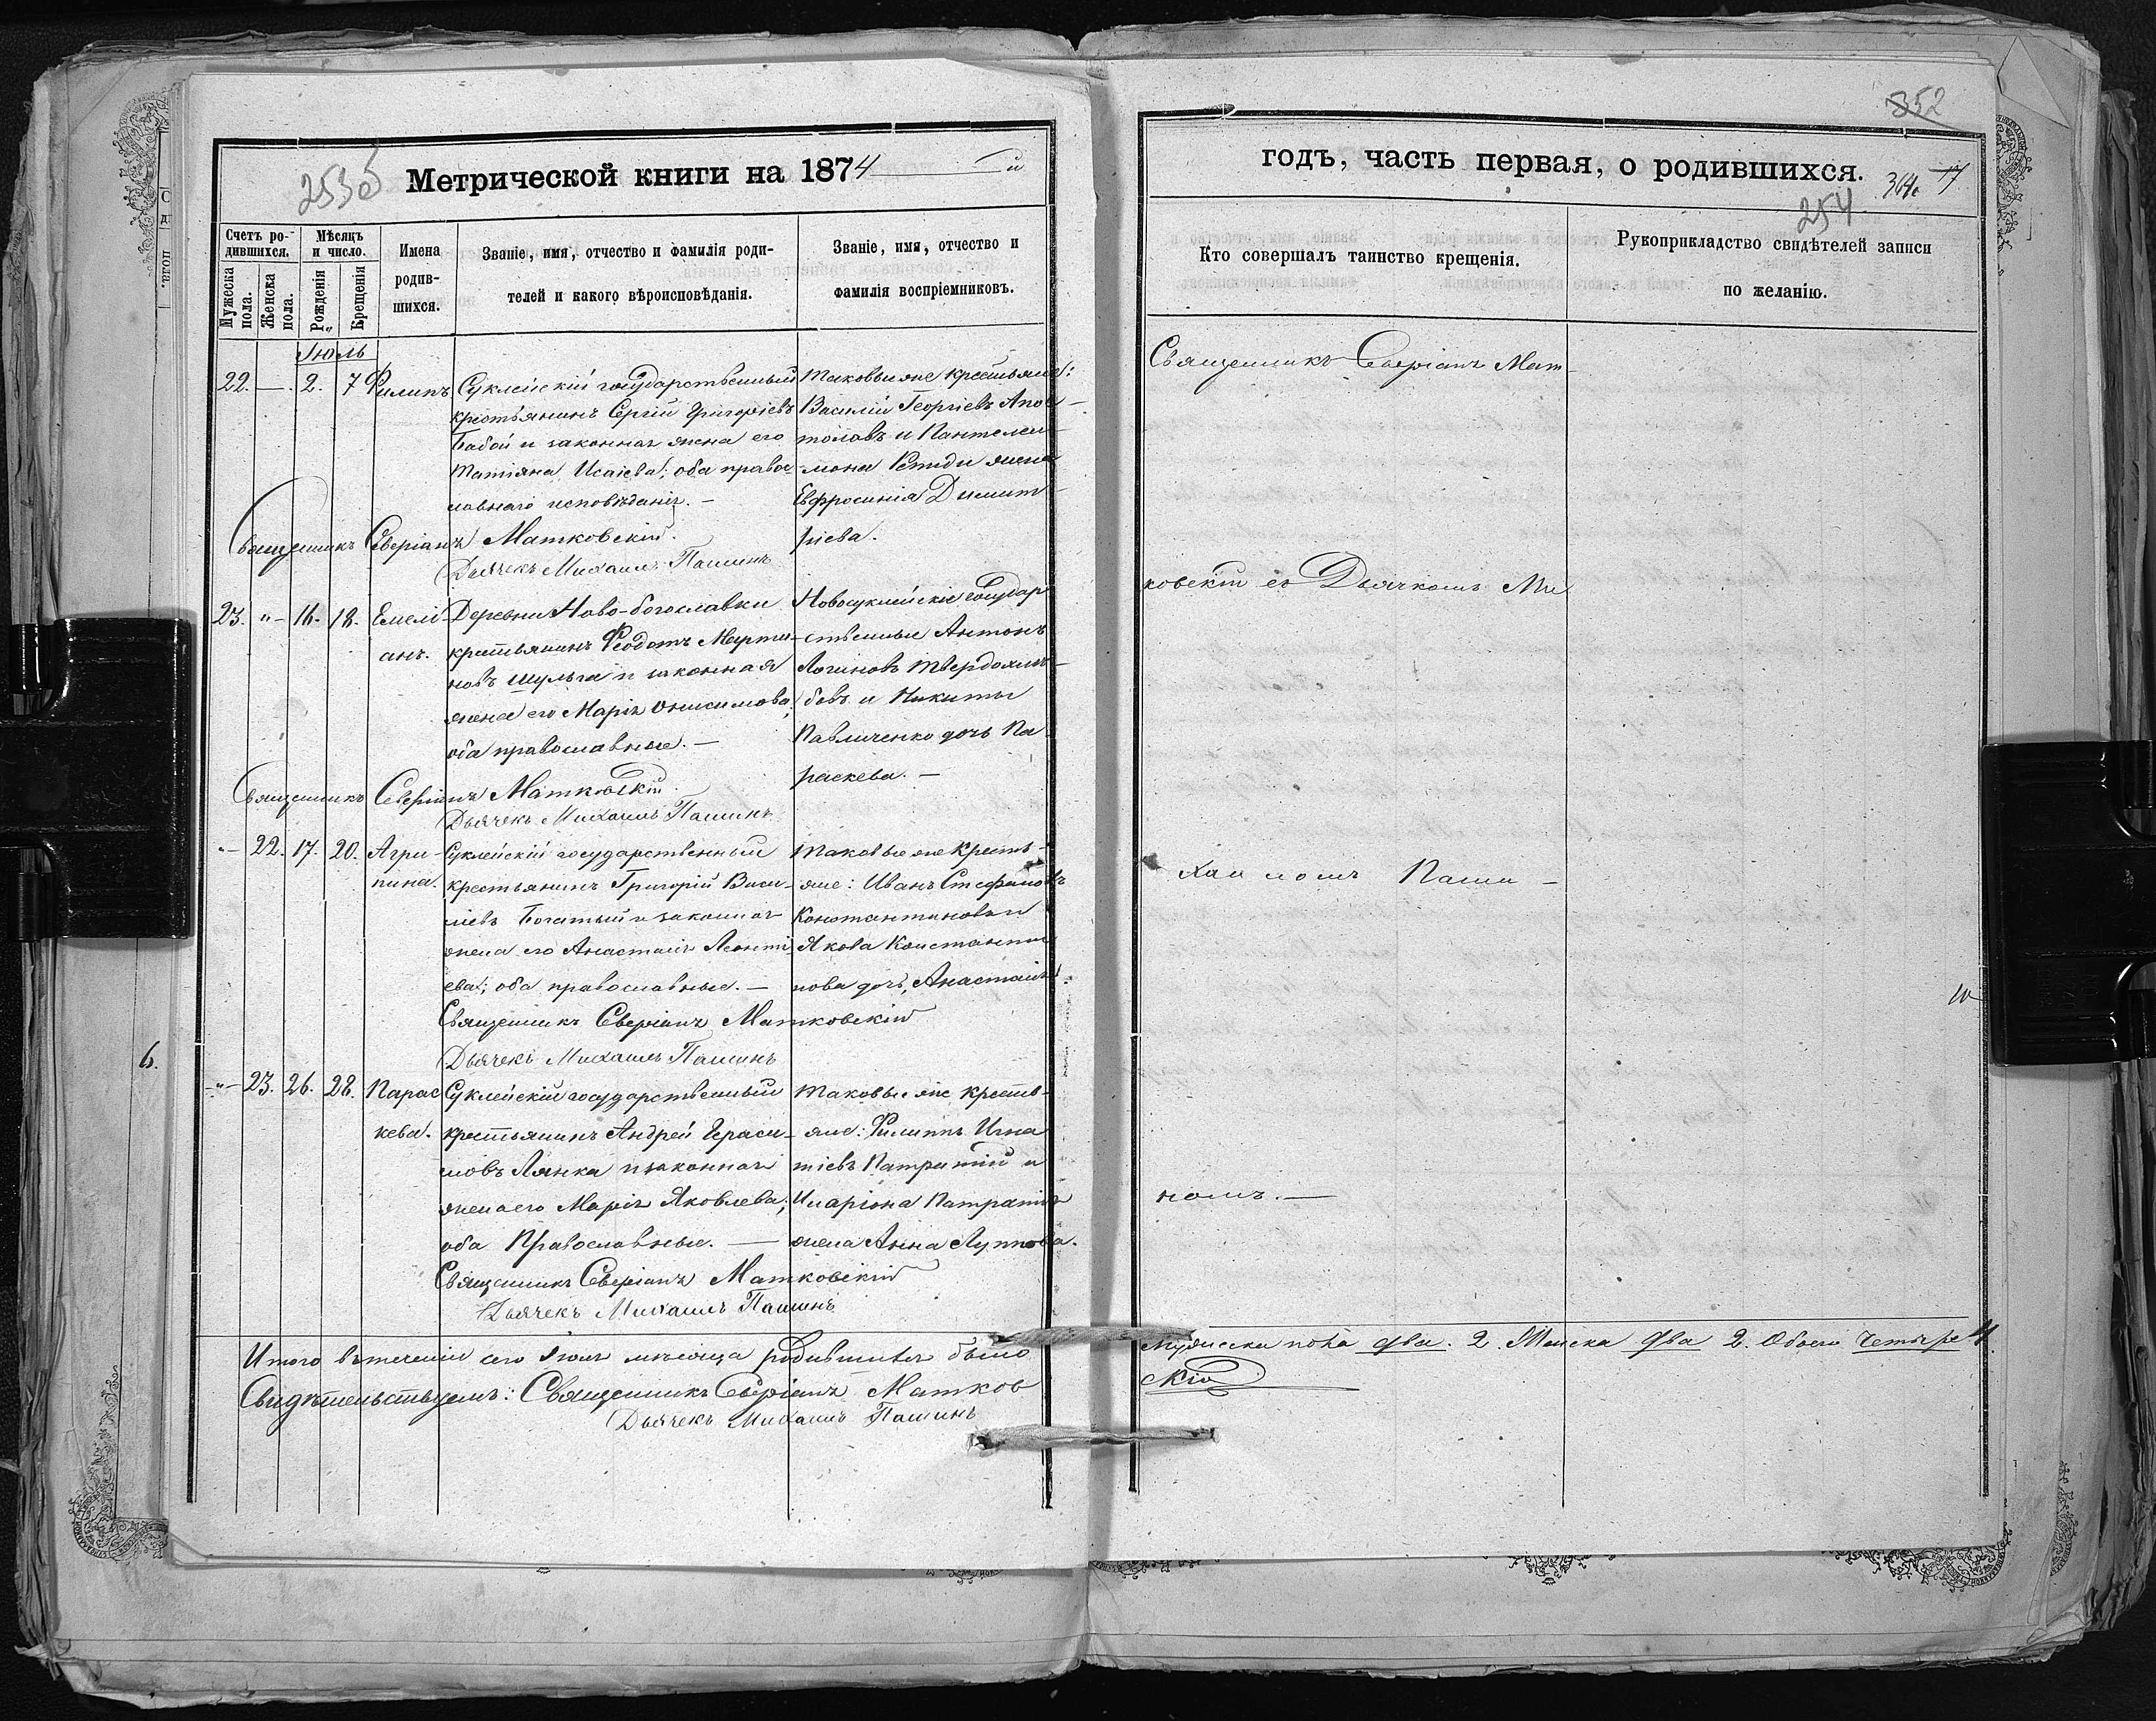 253об
Метрической книги на 1874 й
Счетъ родившихся.
Мѣсяцъ и число.
Мужеска пола.
Женска пола.
Рожденія
Крещенія
Имена родившихся.
Званіе, имя, отчество и фамилія роди-
телей и какого вѣроисповѣданія.
Званіе, имя, отчество и
фамилія воспріемниковъ.
Іюль
22. — 2. 7 Филипъ
Суклейскій государственный
крестьянинъ Сергій Григоріевъ
Бабой и законная жена его
Татіяна Исаіева; оба право
лавнаго исповѣданія. —
Таковые же крестьяне:
Василій Георгіевъ Апос-
толовъ и Пантелеи-
мона жена
Евфросинія Димит-
ріева.
Священникъ Северіанъ Матковскій.
Дьячекъ Михаилъ Пашинъ
23. „— 16. 18. Емелі-
анъ.
Деревни Ново-богославки
крестьянинъ Феодотъ Марти-
новъ Шульга и законная
жена его Марія Онисимова;
оба православные. —
Новосуклейскіе государ
ственные Антонъ
Логиновъ Твердохлѣ-
бовъ и Никиты
Павличенко дочь Па
раскева. —
Священникъ Северіанъ Матковскій.
Дьячекъ Михаилъ Пашинъ
„— 22. 17. 20. Агри-
пина.
Суклейскій государственный
крестьянинъ Григорій Васи-
ліевъ Богатый и законная
жена его Анастасія Леонті-
ева; оба православные. —
Таковые же кресть-
яне: Иванъ Стефановъ
Константиновъ и
Якова Константи
нова дочь, Анастасія.
Священникъ Северіанъ Матковскій
Дьячекъ Михаилъ Пашинъ
„— 23. 26. 28. Парас
кева.
Суклейскій государственный
крестьянинъ Андрей Гераси-
мовъ Лянка и законная
жена его Марія Яковлева;
оба Православные. —
Таковые же кресть-
яне: Филиппъ Игна
тіевъ Патратій и
Иларіона Патратія
жена Анна Луппова.
Священникъ Северіанъ Матковскій
Дьячекъ Михаилъ Пашинъ
Итого втеченіи сего Іюля мѣсяца родившихся было
Свидѣтельствуемъ: Священникъ Северіанъ Матков
Дьячекъ Михаилъ Пашинъ
6.
352
годъ, часть первая, о родившихся.
254
17
Кто совершалъ таинство крещенія.
Рукоприкладство свидѣтелей записи
по желанію.
Священникъ Северіанъ Мат-
ковскій съ Дьячкомъ Ми
хаиломъ Паши-
номъ. —
Мужеска пола два. 2. Женска два 2. Обоего четыре 4.
скій